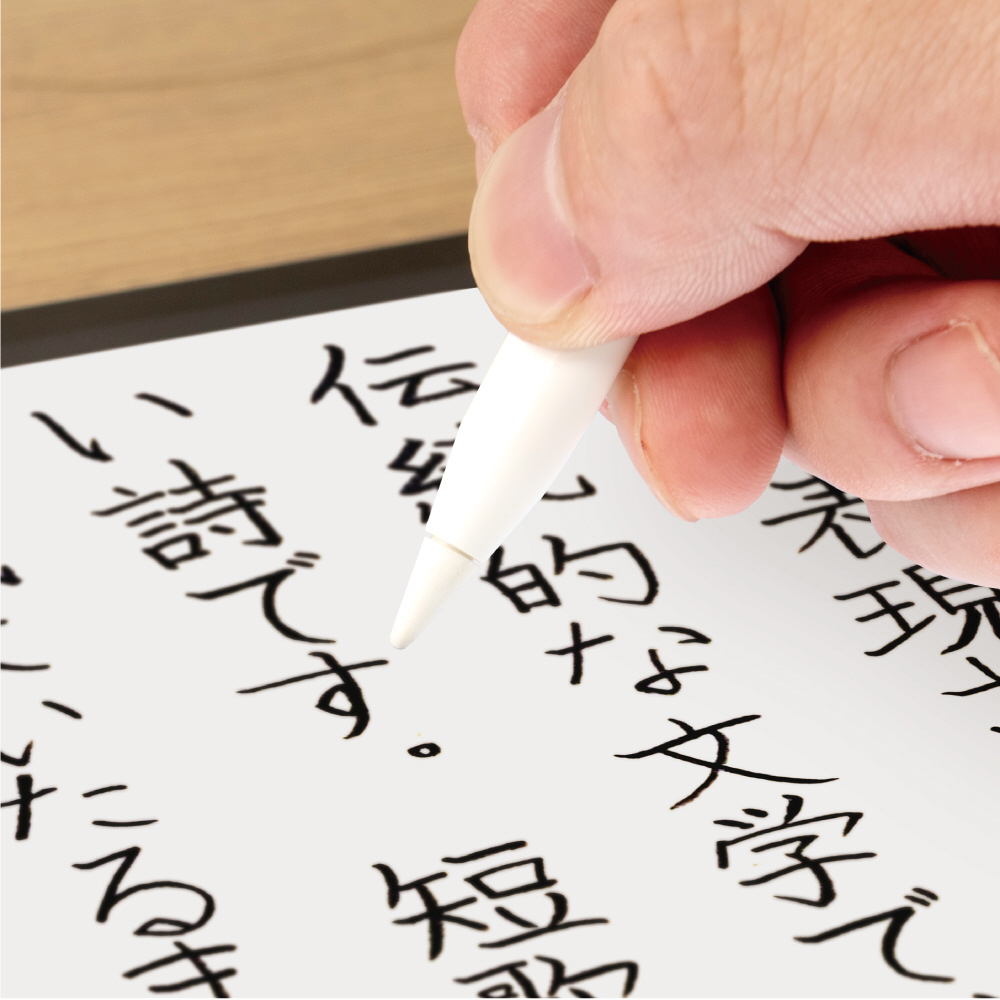 表現
伝統的な文学で
い詩です。短歌
いたる